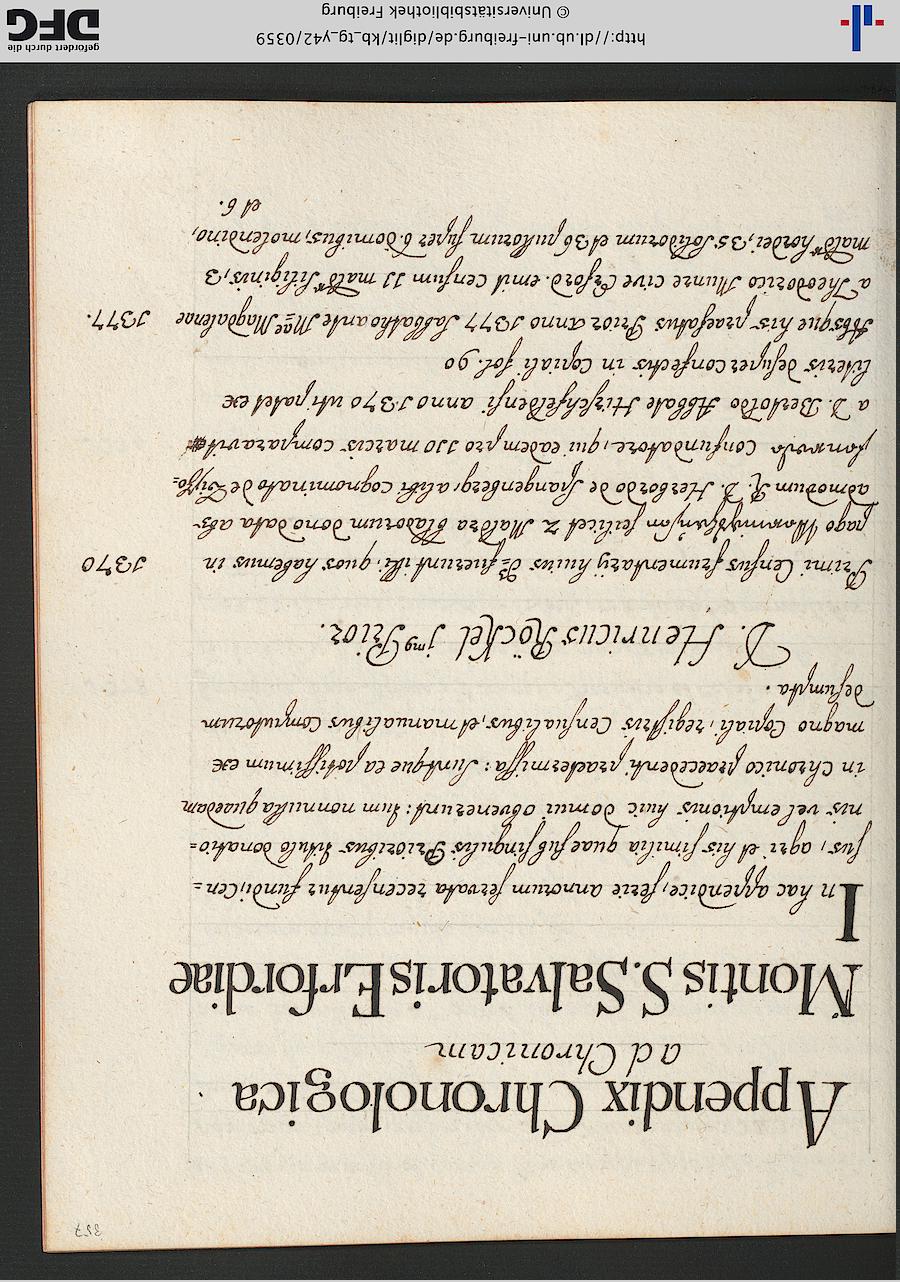 357
Appendix Chronologica
ad Chronicam
Montis S. Salvatoris Erfordiae
In hac appendice, serie annorum servata recensentur fundi, Cen=
sus, agri et his similia quae sub singulis Prioribus titulo donatio=
nis vel emptionis huic domui obvenerunt: tum nonnulla quaedam
in Chronico praecedenti praetermissa: suntque ea potissimum ex
magno Copiali, registris Censualibus, et manualibus Computorum
desumpta.
D. Henricus Röckel jmus Prior.
Primi Census frumentarij huius fuerunt illi, quos habemus in 1370
pago scilicet 2 Maldra bladorum dono data ab
admodum R. D. Herbordo de Spangenberg, alibi cognominato de
Confundatore, qui eadem pro 110 marcis comparavit
a D. Bertoldo Abbate Hirschfeldensi anno 1370 uti patet ex
literis desuper confectis in Copiali fol. 90
Absque his praefatus Prior anno 1377 Sabbatho ante Mae Magdalenae 1377.
a Theodorico Munre cive Erford. emit censum 11 mald siliginis, 3
mald hordei, 35 solidorum et 36 pullorum super 6 domibus, molendino,
et 6.
http://dl.ub.uni-freiburg.de/diglit/kb_tg_y42/0359
© Universitätsbibliothek Freiburg
gefördert durch die
DFG